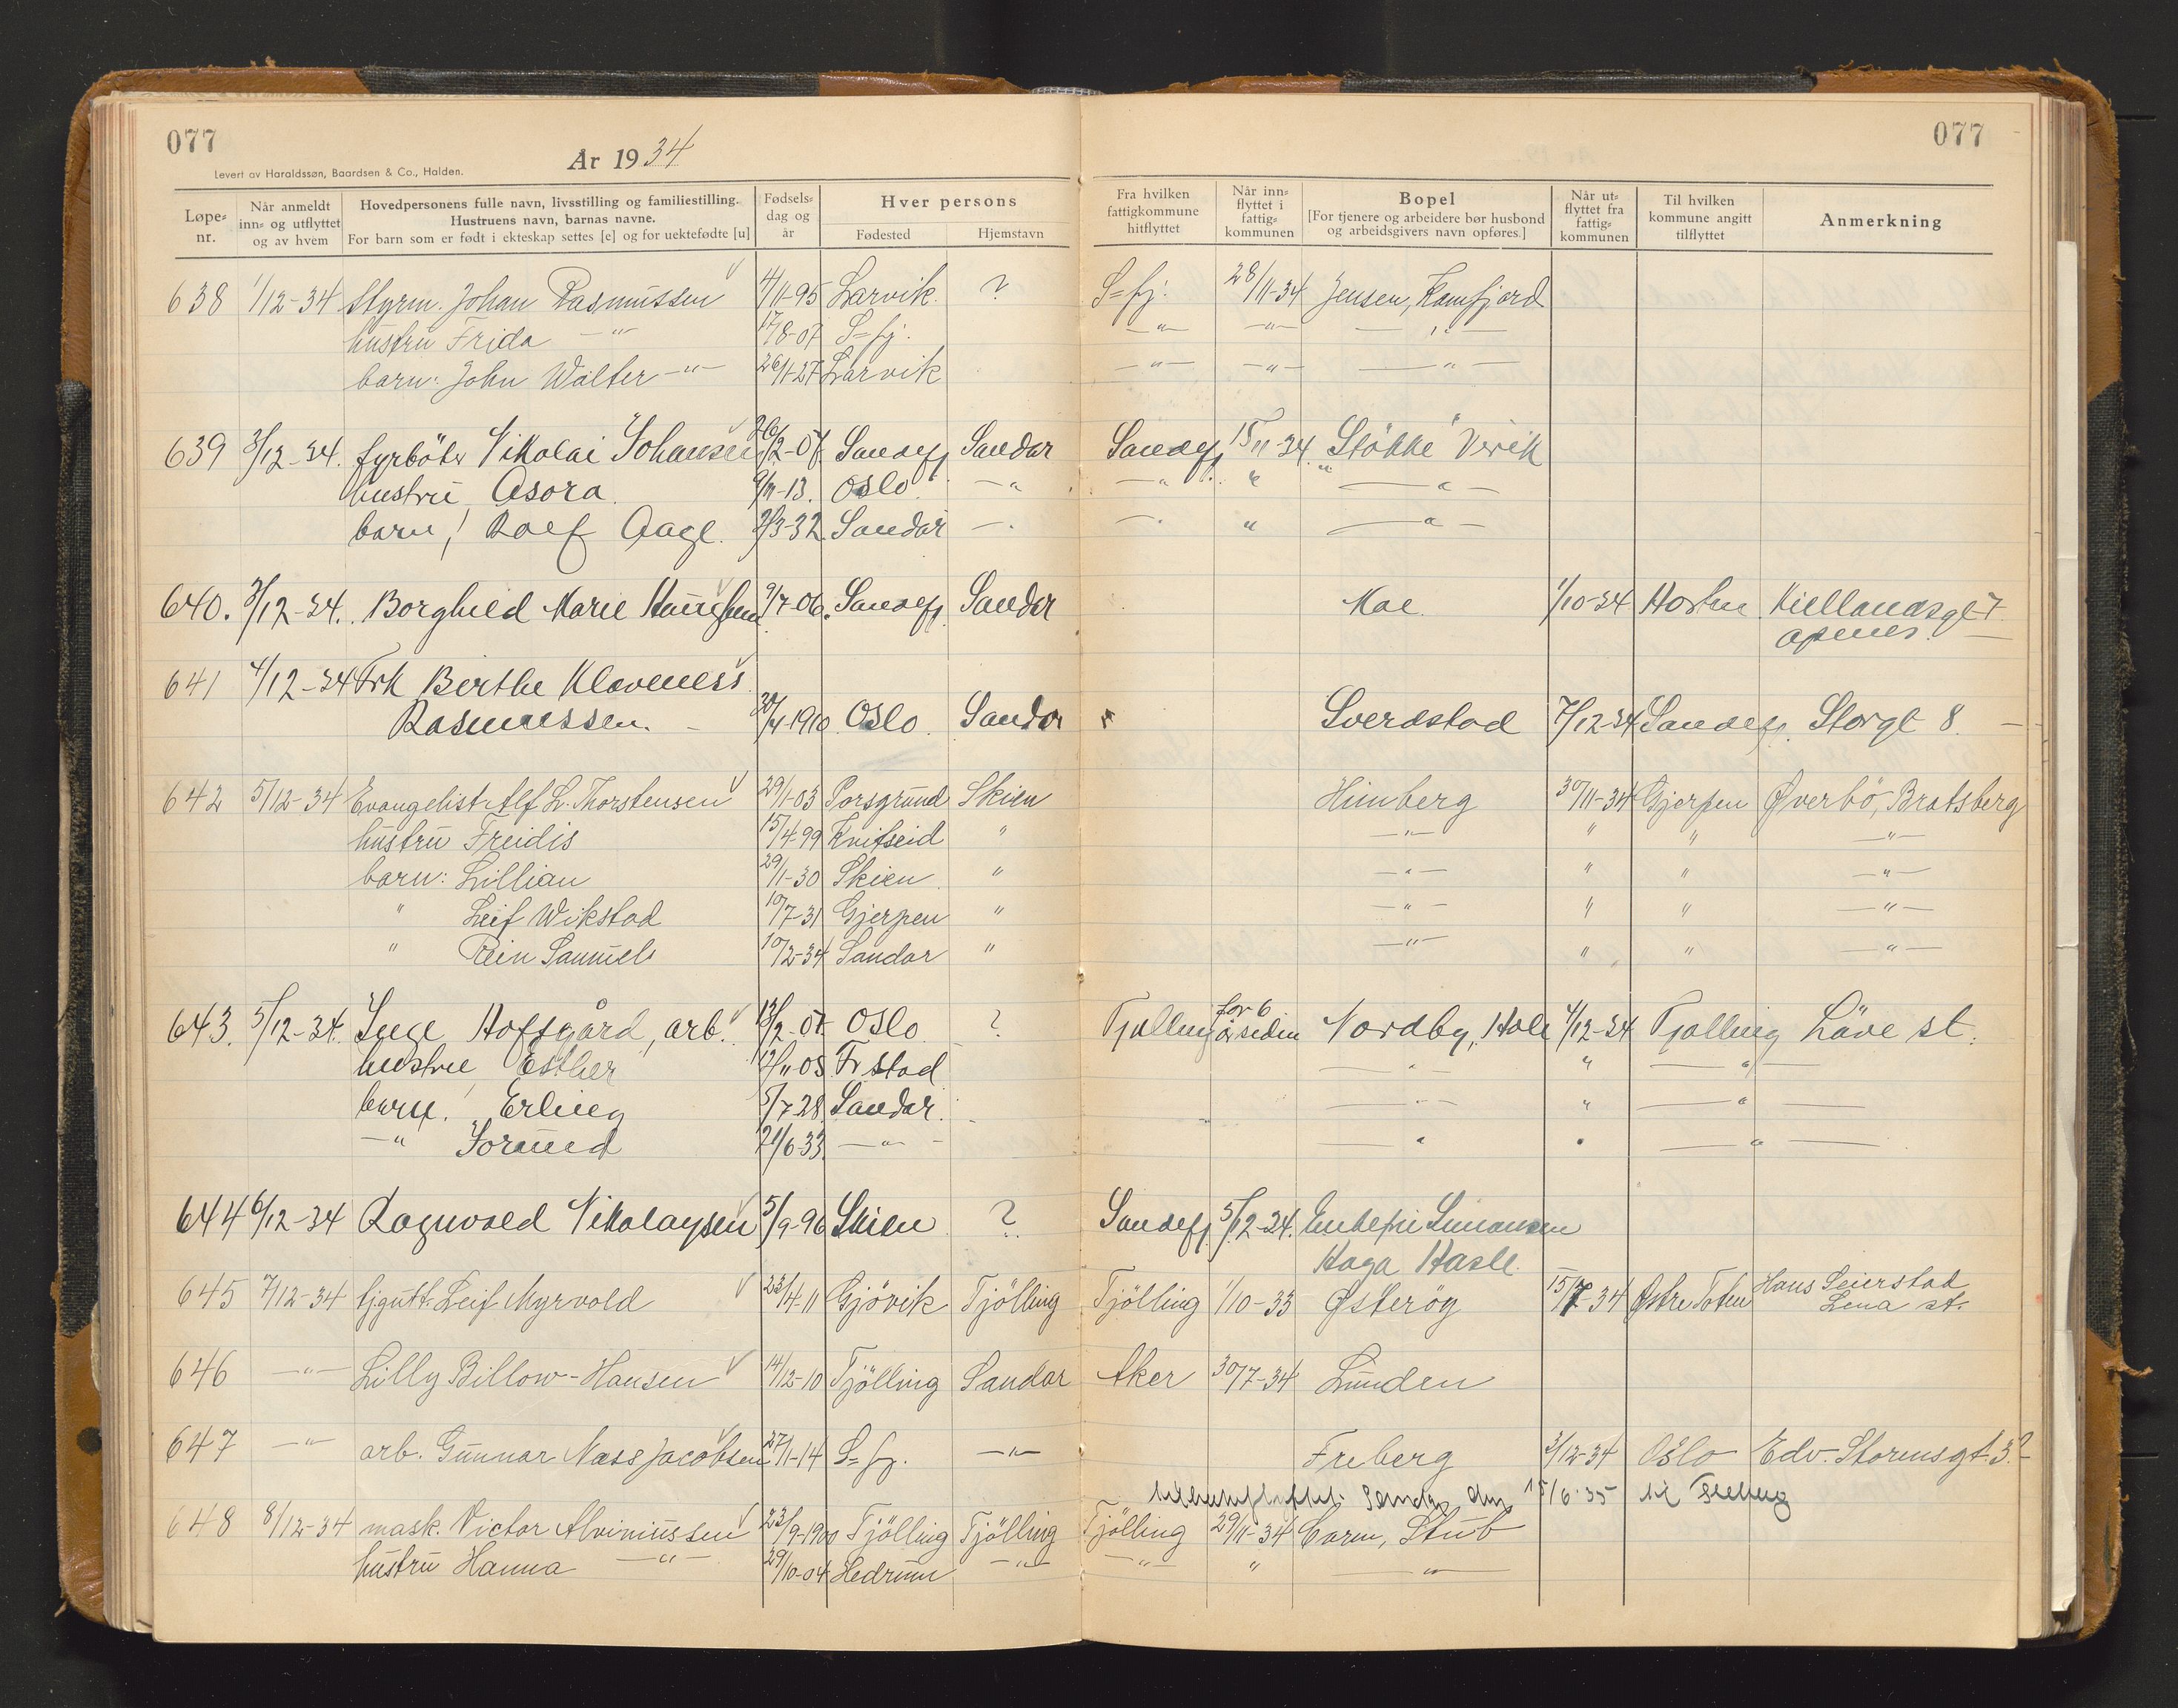 077
År 1934
Levert av Haraldssøn, Baardsen & Co., Halden.
077
Løpe-nr.
Når anmeldt inn- og utflyttet og av hvem
Hovedpersonens fulle navn, livsstilling og familiestilling. Hustruens navn, barnas navne. For barn som er født i ekteskap settes [e] og for uektefødte [u]
Fødsels-dag og år
Hver persons
Fødested
Hjemstavn
Fra hvilken fattigkommune hitflyttet
Når inn-flyttet i fattig-kommunen
Bopel [For tjenere og arbeidere bør husbond og arbeidsgivers navn opføres.]
Når ut-flyttet fra fattig-kommunen
Til hvilken kommune angitt tilflyttet
Anmerkning
638 1/12-34 Styrm. Johan Rasmussen 4/11-95 Larvik. ? S=fj. 28/11-34 Jensen, Kamfjord
hustru Frida —"— 17/8-07 S=fj. —"— —"— —"—
barn: John Walter —"— 26/11-27 Larvik —"— —"— —"—
639 3/12-34. fyrböter Nikolai Johansen 26/2-07 Sandefj Sandar Sandefj 15/11-34 "Stökke" Virik
hustru Asora 9/11-13. Oslo —" —" " —"—
barn! Rolf Aage. 2/3-32. Sandar —" —" " —"—
640. 3/12-34. Borghild Marie 9/7-06. Sandefj. Sandar Moe. 1/10-34 Horten Kiellandsgt 7 Apenes.
641 4/12-34 Frk Birthe Klaveness
Rasmussen. 20/4-1910 Oslo. Sandar Sverdstad 7/12-34 Sandefj. Storgt 8. —
642 5/12-34 Evangelist Alf L. Thorstensen 29/1-03 Porsgrund Skien Himberg 30/11-34 Gjerpen Øverbö, Bratsberg
hustru Freidis 15/4-99 Kvitseid " —"— " " —"—
barn: Lillian 29/11-30 Skien " —"— " " —"—
" Leif Wikstad 10/7-31 Gjerpen " —"— " " —"—
" Rein Samuel 10/2-34 Sandar " —"— " " —"—
643. 5/12-34. Inge Hofsgård, arb. 13/2-07 Oslo ? Tjølling for 6 år siden Nordby, Hole 4/12-34 Tjølling Låve st.
hustru Esther 12/11-05 Frstad —"— " —"—
barn! Erling 5/7-28 Sandar. —"— " —"—
—" Jorund 21/6-33. —"— —"— " —"—
644 6/12-34 Ragnvald Nikolaysen 5/9-96 Skien ? Sandefj. 5/12-34. Enkefru Simonsen
Haga Hasle.
645 7/12-34 tjgutt. Leif Myrvold 23/4-11 Gjövik Tjölling Tjölling 1/10-33 Østerøy 15/7-34 Østre Toten Hans Seierstad Lena st.
646 —"— Lilly Billow-Hansen 14/12-10 Tjölling Sandar Aker 30/7-34 Lunden
647 —"— arb. Gunnar Nass Jacobsen 27/1-14 S=fj. —"— Freberg 3/12-34 Oslo Edv. Stormsgt. 3.2
Sandar den 15/6-35 til
648 8/12-34 mask. Victor Alviniussen 23/9-1900 Tjölling Tjölling Tjölling 29/11-34 Caren, Stub
hustru Hanna —"— 29/10-04 Hedrum —"— —"— " —"—